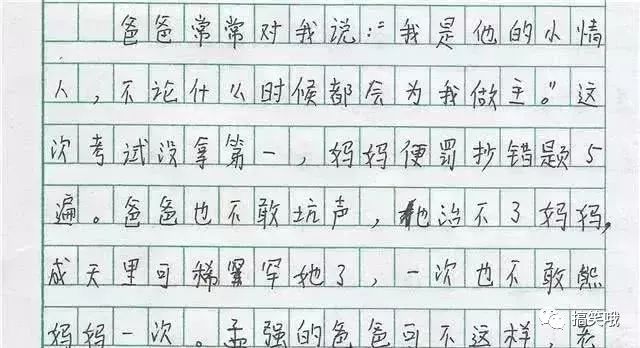 爸爸常常对我说:“我是他的小情
人,不论什么时候都会为我做主。”这
次考试没拿第一,妈妈便罚抄错题5
遍。爸爸也不敢坑声,他治不了妈妈,
成天里可稀罕她了,一次也不敢熊
妈妈一次。孟强的爸爸可不这样,
搞笑哦